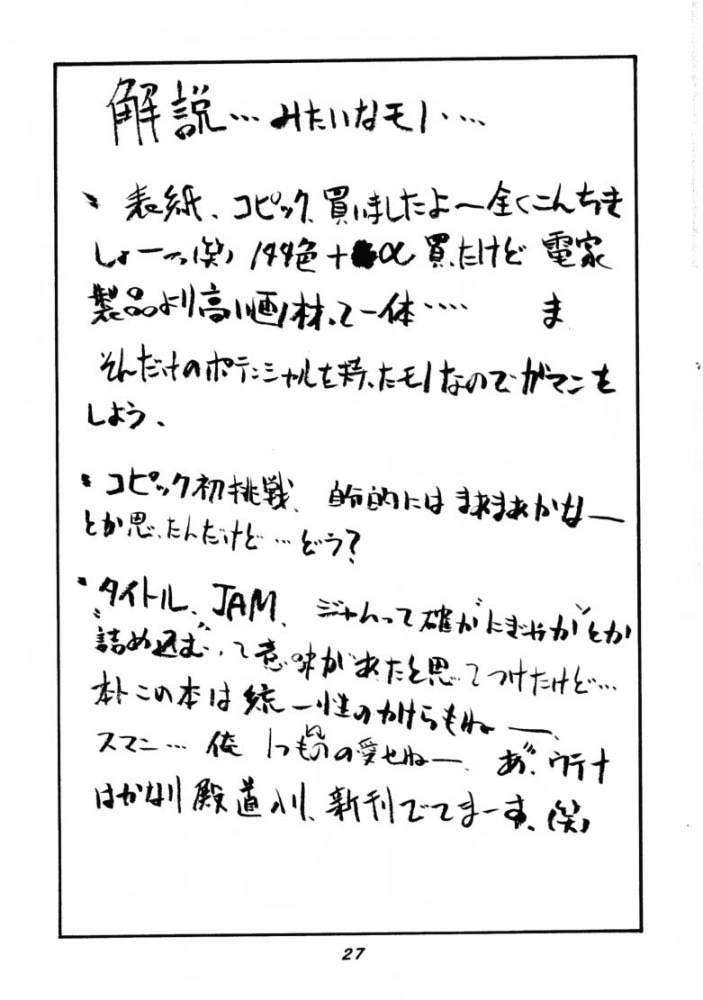 解説…みたいなモノ・…
、表紙、コピック、買いましたよ～全くこんちき
しょーっ(笑) 144色+α買ったけど 電家
製品より高い画材って一体…. ま
そんだけのポテンシャルを持ったモノなのでガマンを
しよう、
・コピック初挑戦、自分的にはまあまあかなー
とか思ったんだけど…どう?
・タイトル、JAM、ジャムって確か"にぎやか"とか
"詰め込む"って意味があったと思ってつけたけど…
本トこの本は統一性のかけらもねー、
スマン… 俺 の愛せねー、あ、ウテナ
はかなり 入り、新刊でてまーす、(笑)
27